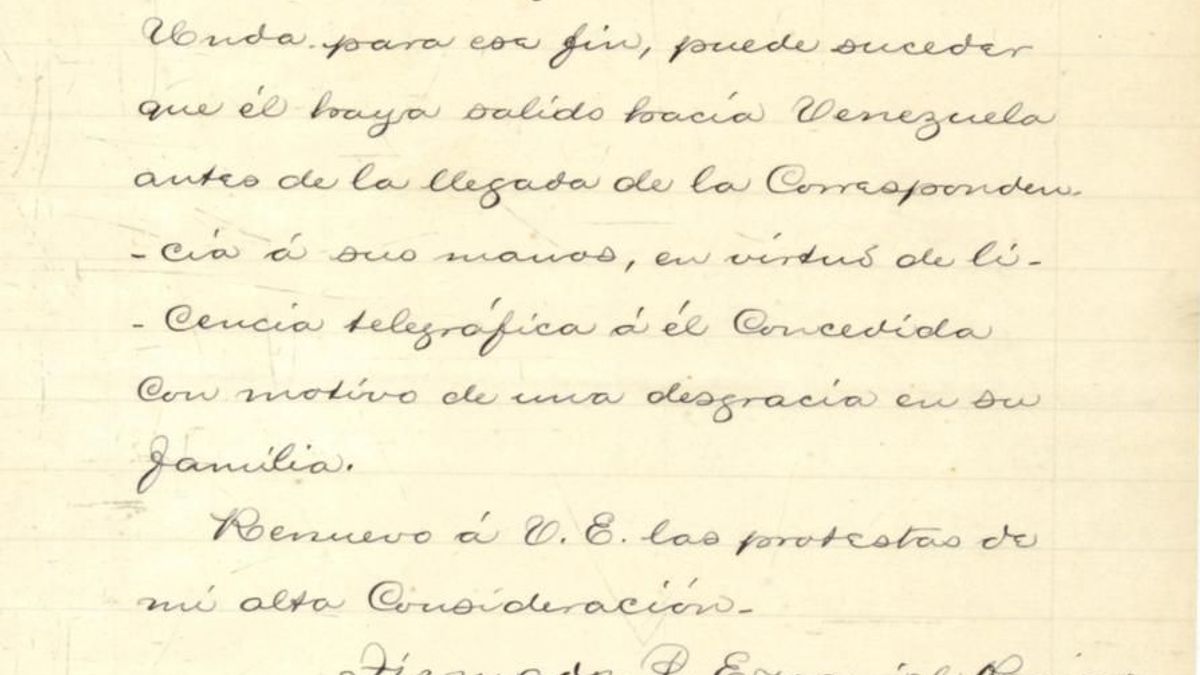 Unda para ese fin, puede suceder
que él haya salido hacia Venezuela
antes de la llegada de la Corresponden-
-cia á sus manos, en virtud de li-
-cencia telegráfica á él Concedida
Con motivo de una desgracia en su
familia.
Renuevo á V. E. las protestas de
mi alta Consideración-